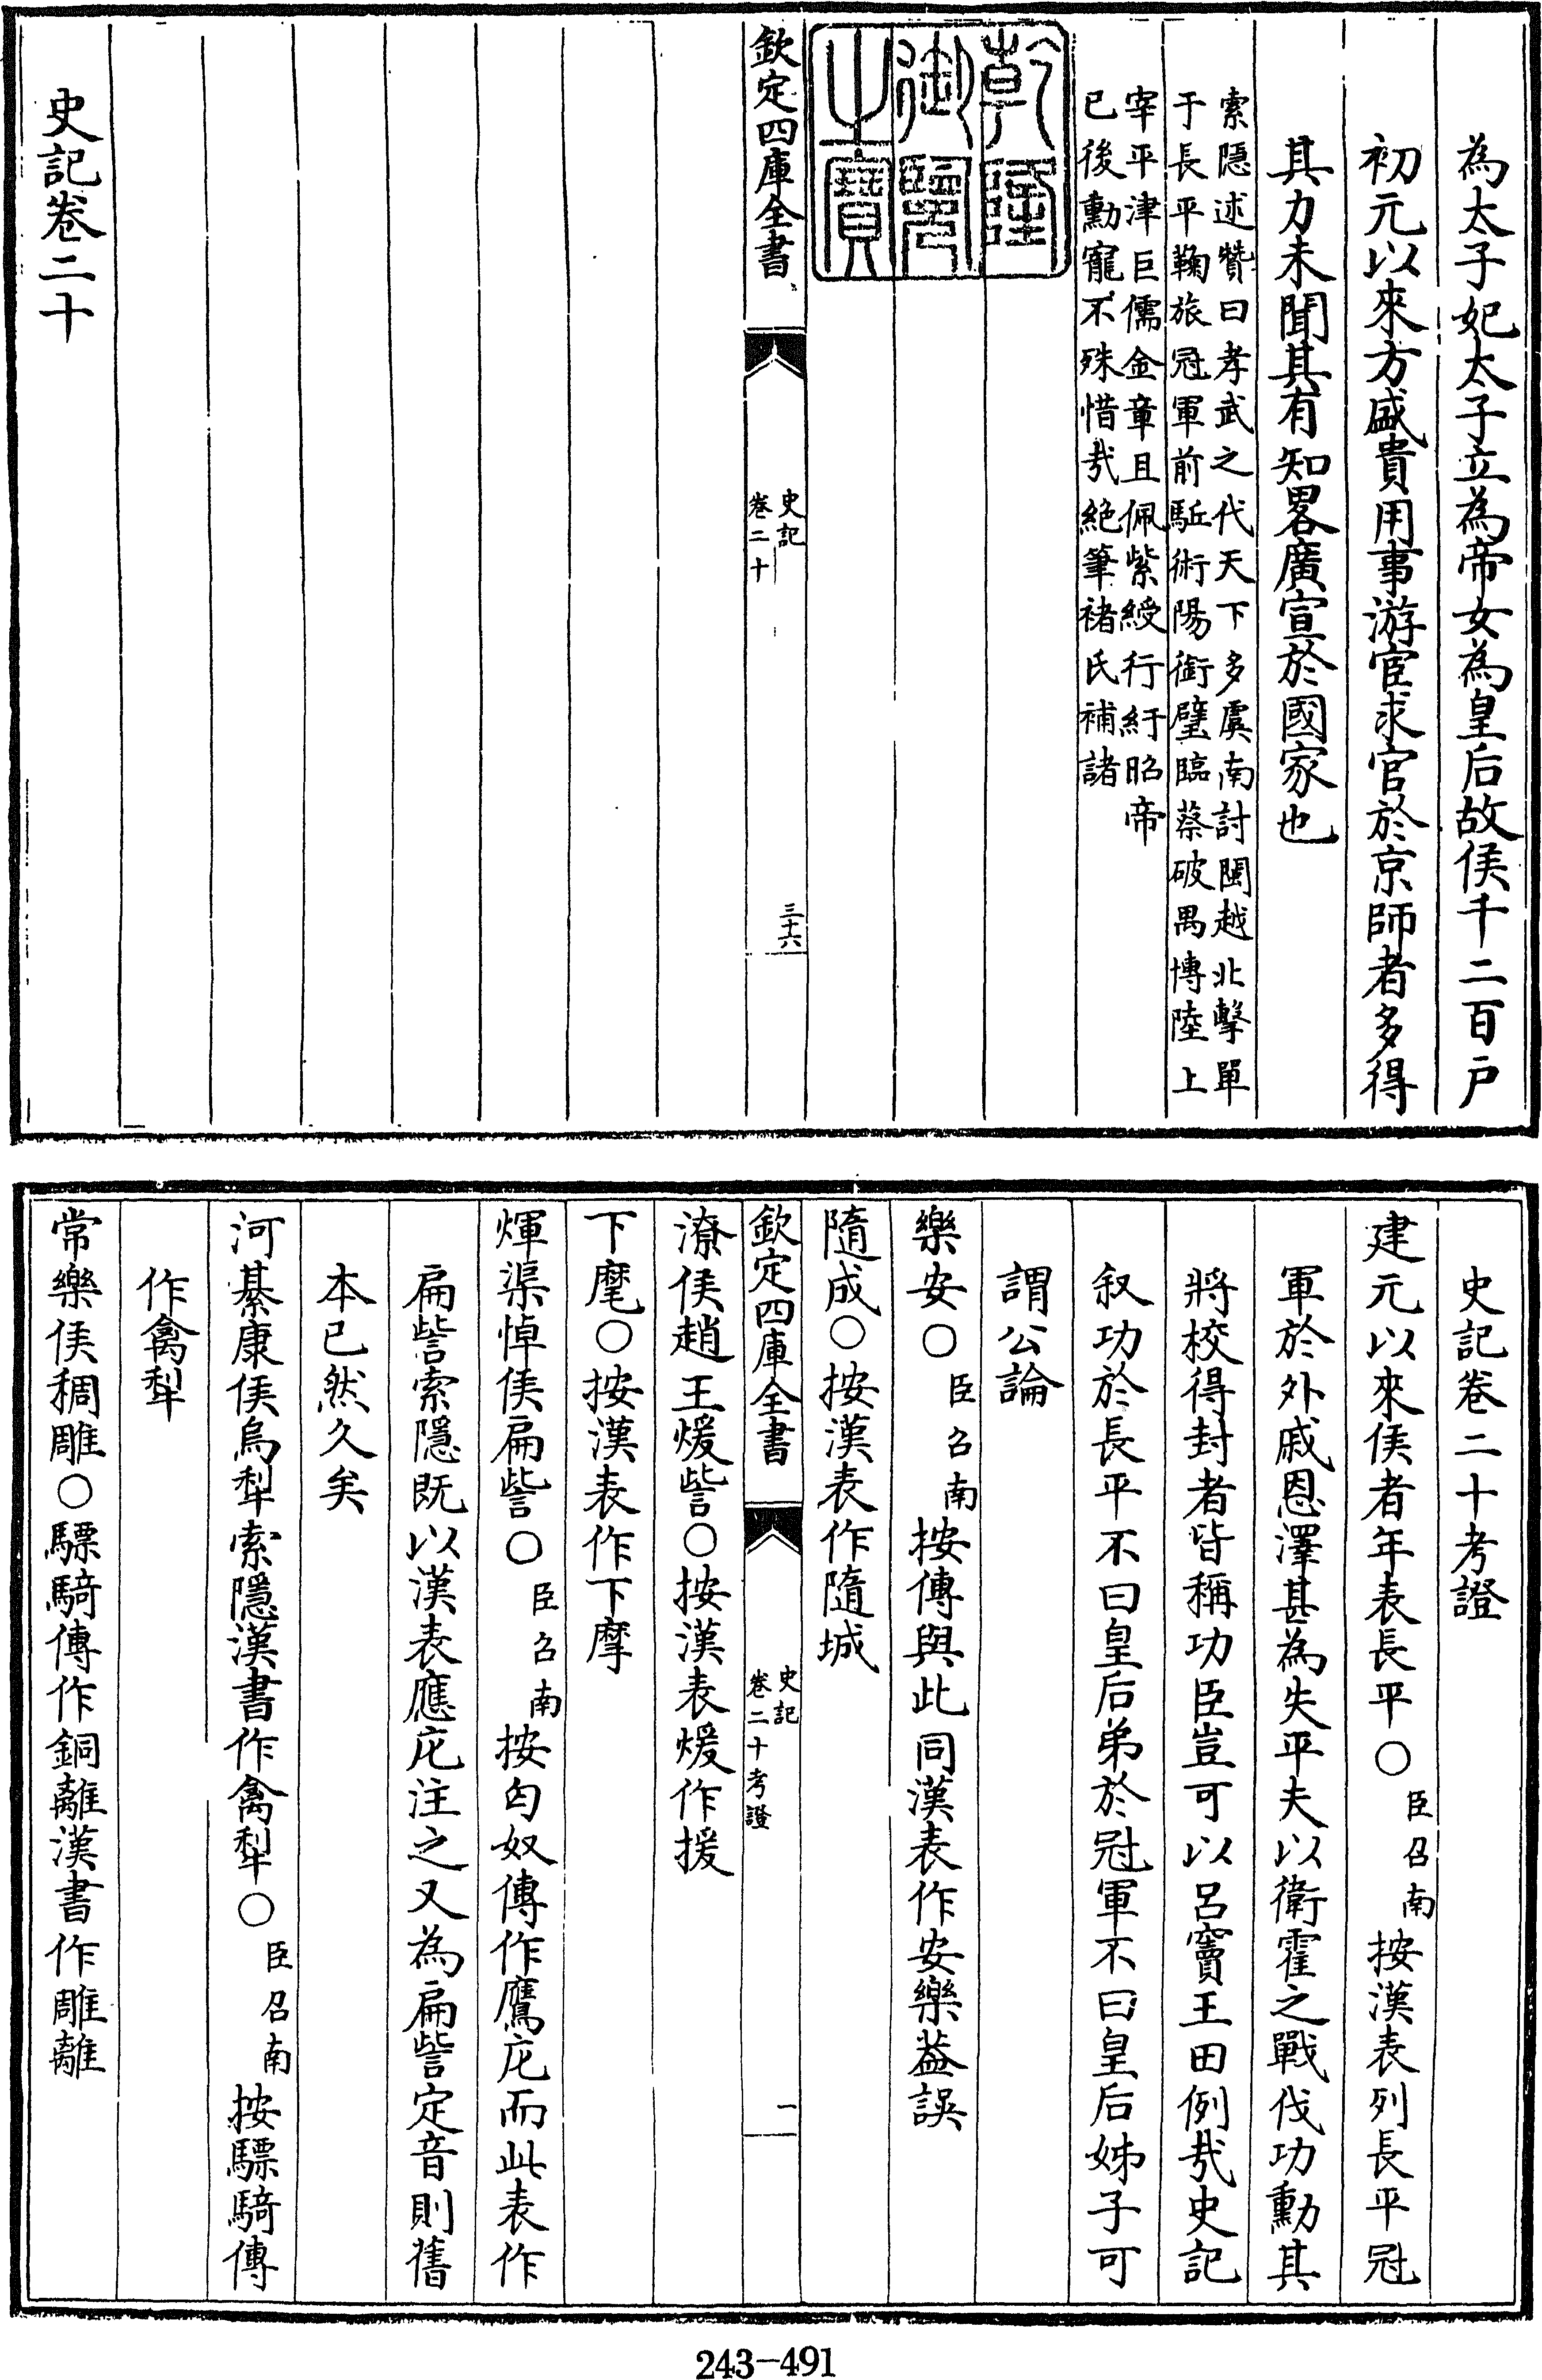 為太子妃太子立為帝女為皇后故侯千二百戸
初元以來方盛貴用事游宦求官於京師者多得
其力未聞其有知畧廣宣於國家也
索隱述贊曰孝武之代天下多虞南討閩越北擊單
于長平鞠旅冠軍前駈術陽銜璧臨蔡破禺博陸上
宰平津巨儒金章且佩紫綬行紆昭帝
已後勳寵不殊惜哉絶筆褚氏補諸
乾隆
御覽
之寶
欽定四庫全書
史記
卷二十
三十六
史記卷二十
史記卷二十考證
建元以來侯者年表長平〇臣召南按漢表列長平冠
軍於外戚恩澤甚為失平夫以衛霍之戰伐功勳其
將校得封者皆稱功臣豈可以呂竇王田例哉史記
叙功於長平不曰皇后弟於冠軍不曰皇后姊子可
謂公論
樂安〇臣召南按傳與此同漢表作安樂葢誤
隨成〇按漢表作隨城
欽定四庫全書
史記
卷二十考證
一
潦侯趙王煖訾〇按漢表煖作援
下麾〇按漢表作下摩
煇渠悼侯扁訾〇臣召南按匈奴傳作鷹庇而此表作
扁訾索隱既以漢表應庇注之又為扁訾定音則舊
本已然久矣
河綦康侯烏犁索隱漢書作禽犁〇臣召南按驃騎傳
作禽犁
常樂侯稠雕〇驃騎傳作銅離漢書作雕離
243-491